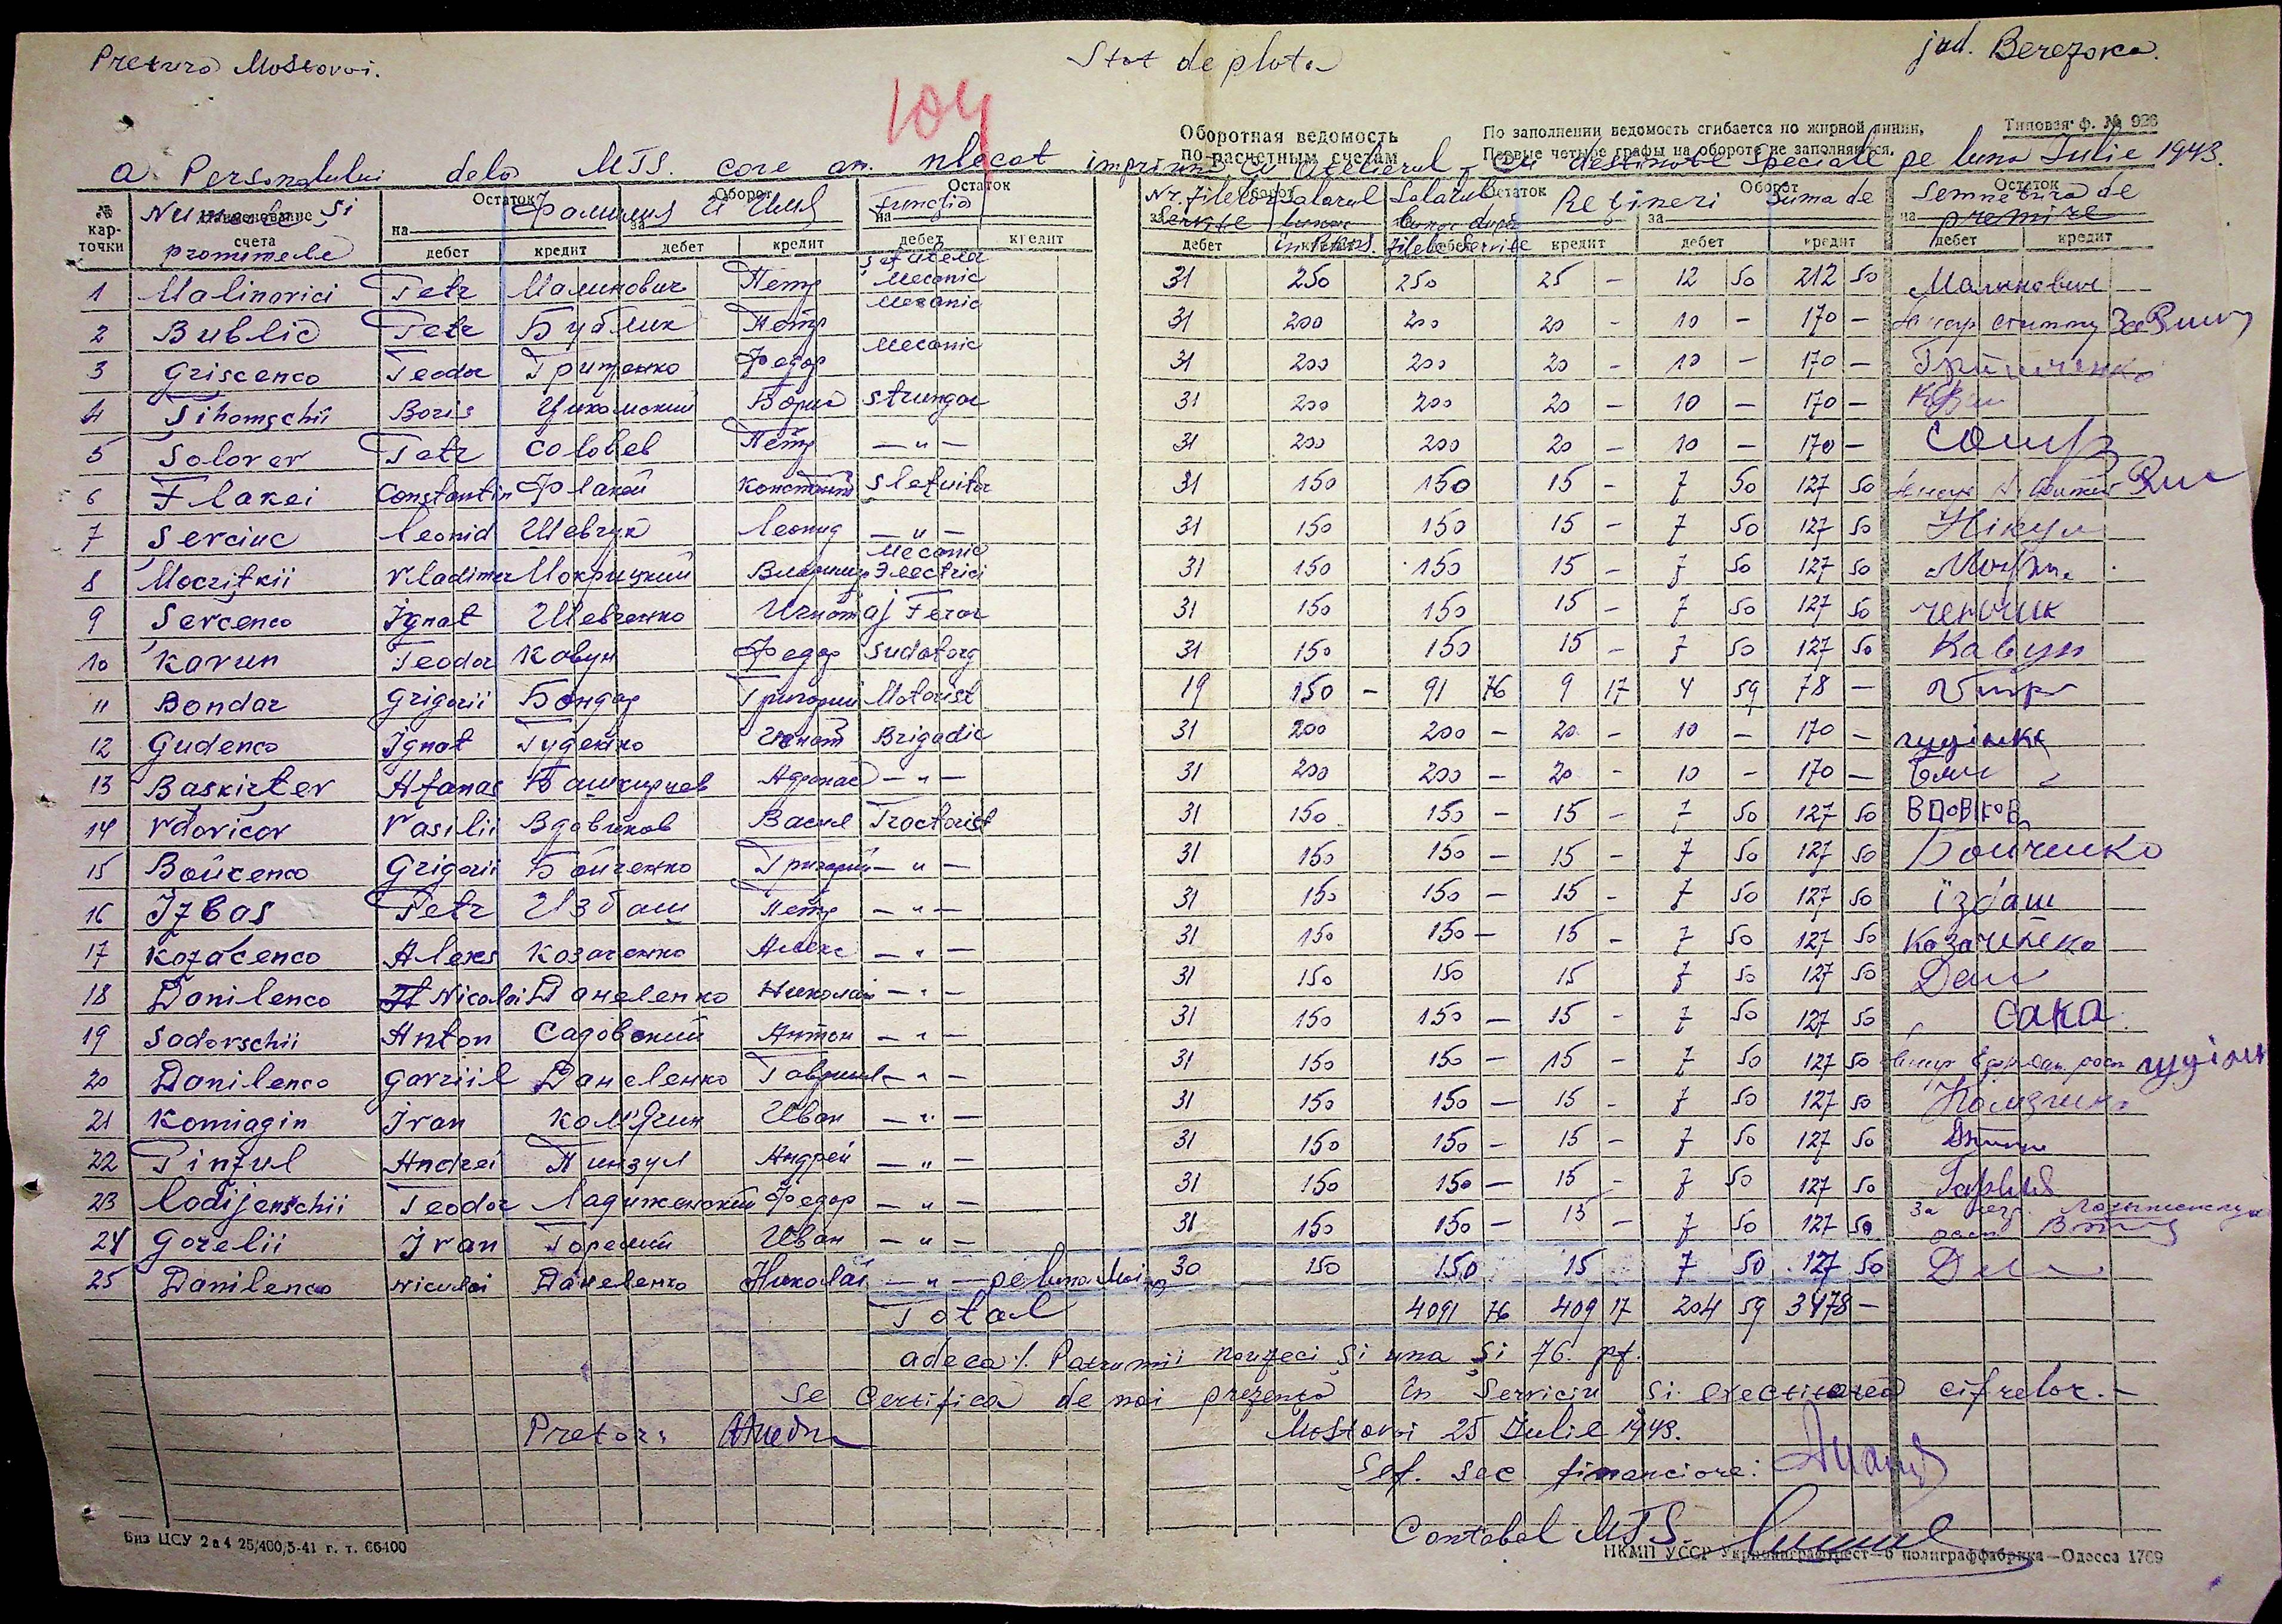 Pretura Mostovoi.
Stat de plata
jud. Berezovca.
104
Оборотная ведомость
по расчетным счетам
По заполнении ведомость сгибается по жирной линии,
Первые четыре графы на обороте не заполняются.
Типовая ф. № 926
a Personalului dela MTS. care au plecat impriuna cu atelierul cu destinatie speciale pe luna Iulie 1943.
№ кар-точки Наименование счета Остаток Оборот Остаток Оборот Остаток Оборот Остаток
Numele si pronumele Фамилия и Имя Functia Nr. zilelor servite Salarul lunar Salarul lunar dupa zilele servite Retineri Suma de Semnetura de primire
на за на за на за на
дебет кредит дебет кредит дебет кредит дебет кредит дебет кредит дебет кредит дебет кредит
1 Malinovici Petr Малинович Петр Mecanic 31 250 250 25 - 12 50 212 50 Малинович
2 Bublic Petr Бублик Петр Mecanic 31 200 200 20 - 10 - 170 -
3 Griscenco Teodor Грищенко Федор Mecanic 31 200 200 20 - 10 - 170 - Грищенко
4 Sihomschii Boris Цихомский Борис Strungar 31 200 200 20 - 10 - 170 -
5 Solover Petr Соловев Петр - " - 31 200 200 20 - 10 - 170 -
6 Flakei Constantin Флакей Константин Slefuitor 31 150 150 15 - 7 50 127 50
7 Sevciuc Leonid Шевчук Леонид - " - 31 150 150 15 - 7 50 127 50
8 Mocritkii Vladimer Мокрицкий Владимир Mecanic Electrici 31 150 150 15 - 7 50 127 50
9 Sevcenco Ignat Шевченко Игнат aj Ferar 31 150 150 15 - 7 50 127 50
10 Kavun Teodor Кавун Федор Sudatorg 31 150 150 15 - 7 50 127 50 Кавун
11 Bondar Grigorii Бондар Григорий Motorist 19 150 - 91 76 9 17 4 59 78 -
12 Gudenco Ignat Гуденко Игнат Brigadir 31 200 200 - 20 - 10 - 170 -
13 Baskirtev Afanas Башкирцев Афанас - " - 31 200 200 - 20 - 10 - 170 -
14 Vdovicov Vasilii Вдовиков Васил Tractorist 31 150 150 - 15 - 7 50 127 50 Вдовков
15 Boicenco Grigorii Бойченко Григорий - " - 31 150 150 - 15 - 7 50 127 50 Бойченко
16 Izbas Petr Избаш Петр - " - 31 150 150 - 15 - 7 50 127 50 їзбаш
17 Kozacenco Aleks Козаченко Алекс - " - 31 150 150 - 15 - 7 50 127 50 Козаченко
18 Danilenco Nicolai Даниленко Николай - " - 31 150 150 15 7 50 127 50 Дан
19 Sadovschii Anton Садовский Антон - " - 31 150 150 - 15 - 7 50 127 50 сака
20 Danilenco Gavriil Даниленко Гавриил - " - 31 150 150 - 15 - 7 50 127 50
21 Komiagin Ivan Ком'ягин Иван - " - 31 150 150 - 15 - 7 50 127 50
22 Pinzul Andrei Пинзул Андрей - " - 31 150 150 - 15 - 7 50 127 50
23 Ladijenschii Teodor Ладиженский Федор - " - 31 150 150 - 15 - 7 50 127 50
24 Gorelii Ivan Горелий Иван - " - 31 150 150 - 15 - 7 50 127 50
25 Danilenco Niculai Даниленко Николай - " - pe luna Mai 30 150 150 15 7 50 127 50
Total 4091 76 409 17 204 59 3478 -
adeca /. Patrumii nouzeci si una si 76 pf.
Se Certifica de noi prezenta in Serviciu si exectitarea cifrelor. -
Pretor:
Mostovoi 25 Iulie 1943.
Sef. sec financiore:
Contabal MTS.
Биз ЦСУ 2 а 4 25/400,5-41 г. т. 66400
НКМП УССР Укрполиграфтрест—6 полиграффабрика—Одесса 1769